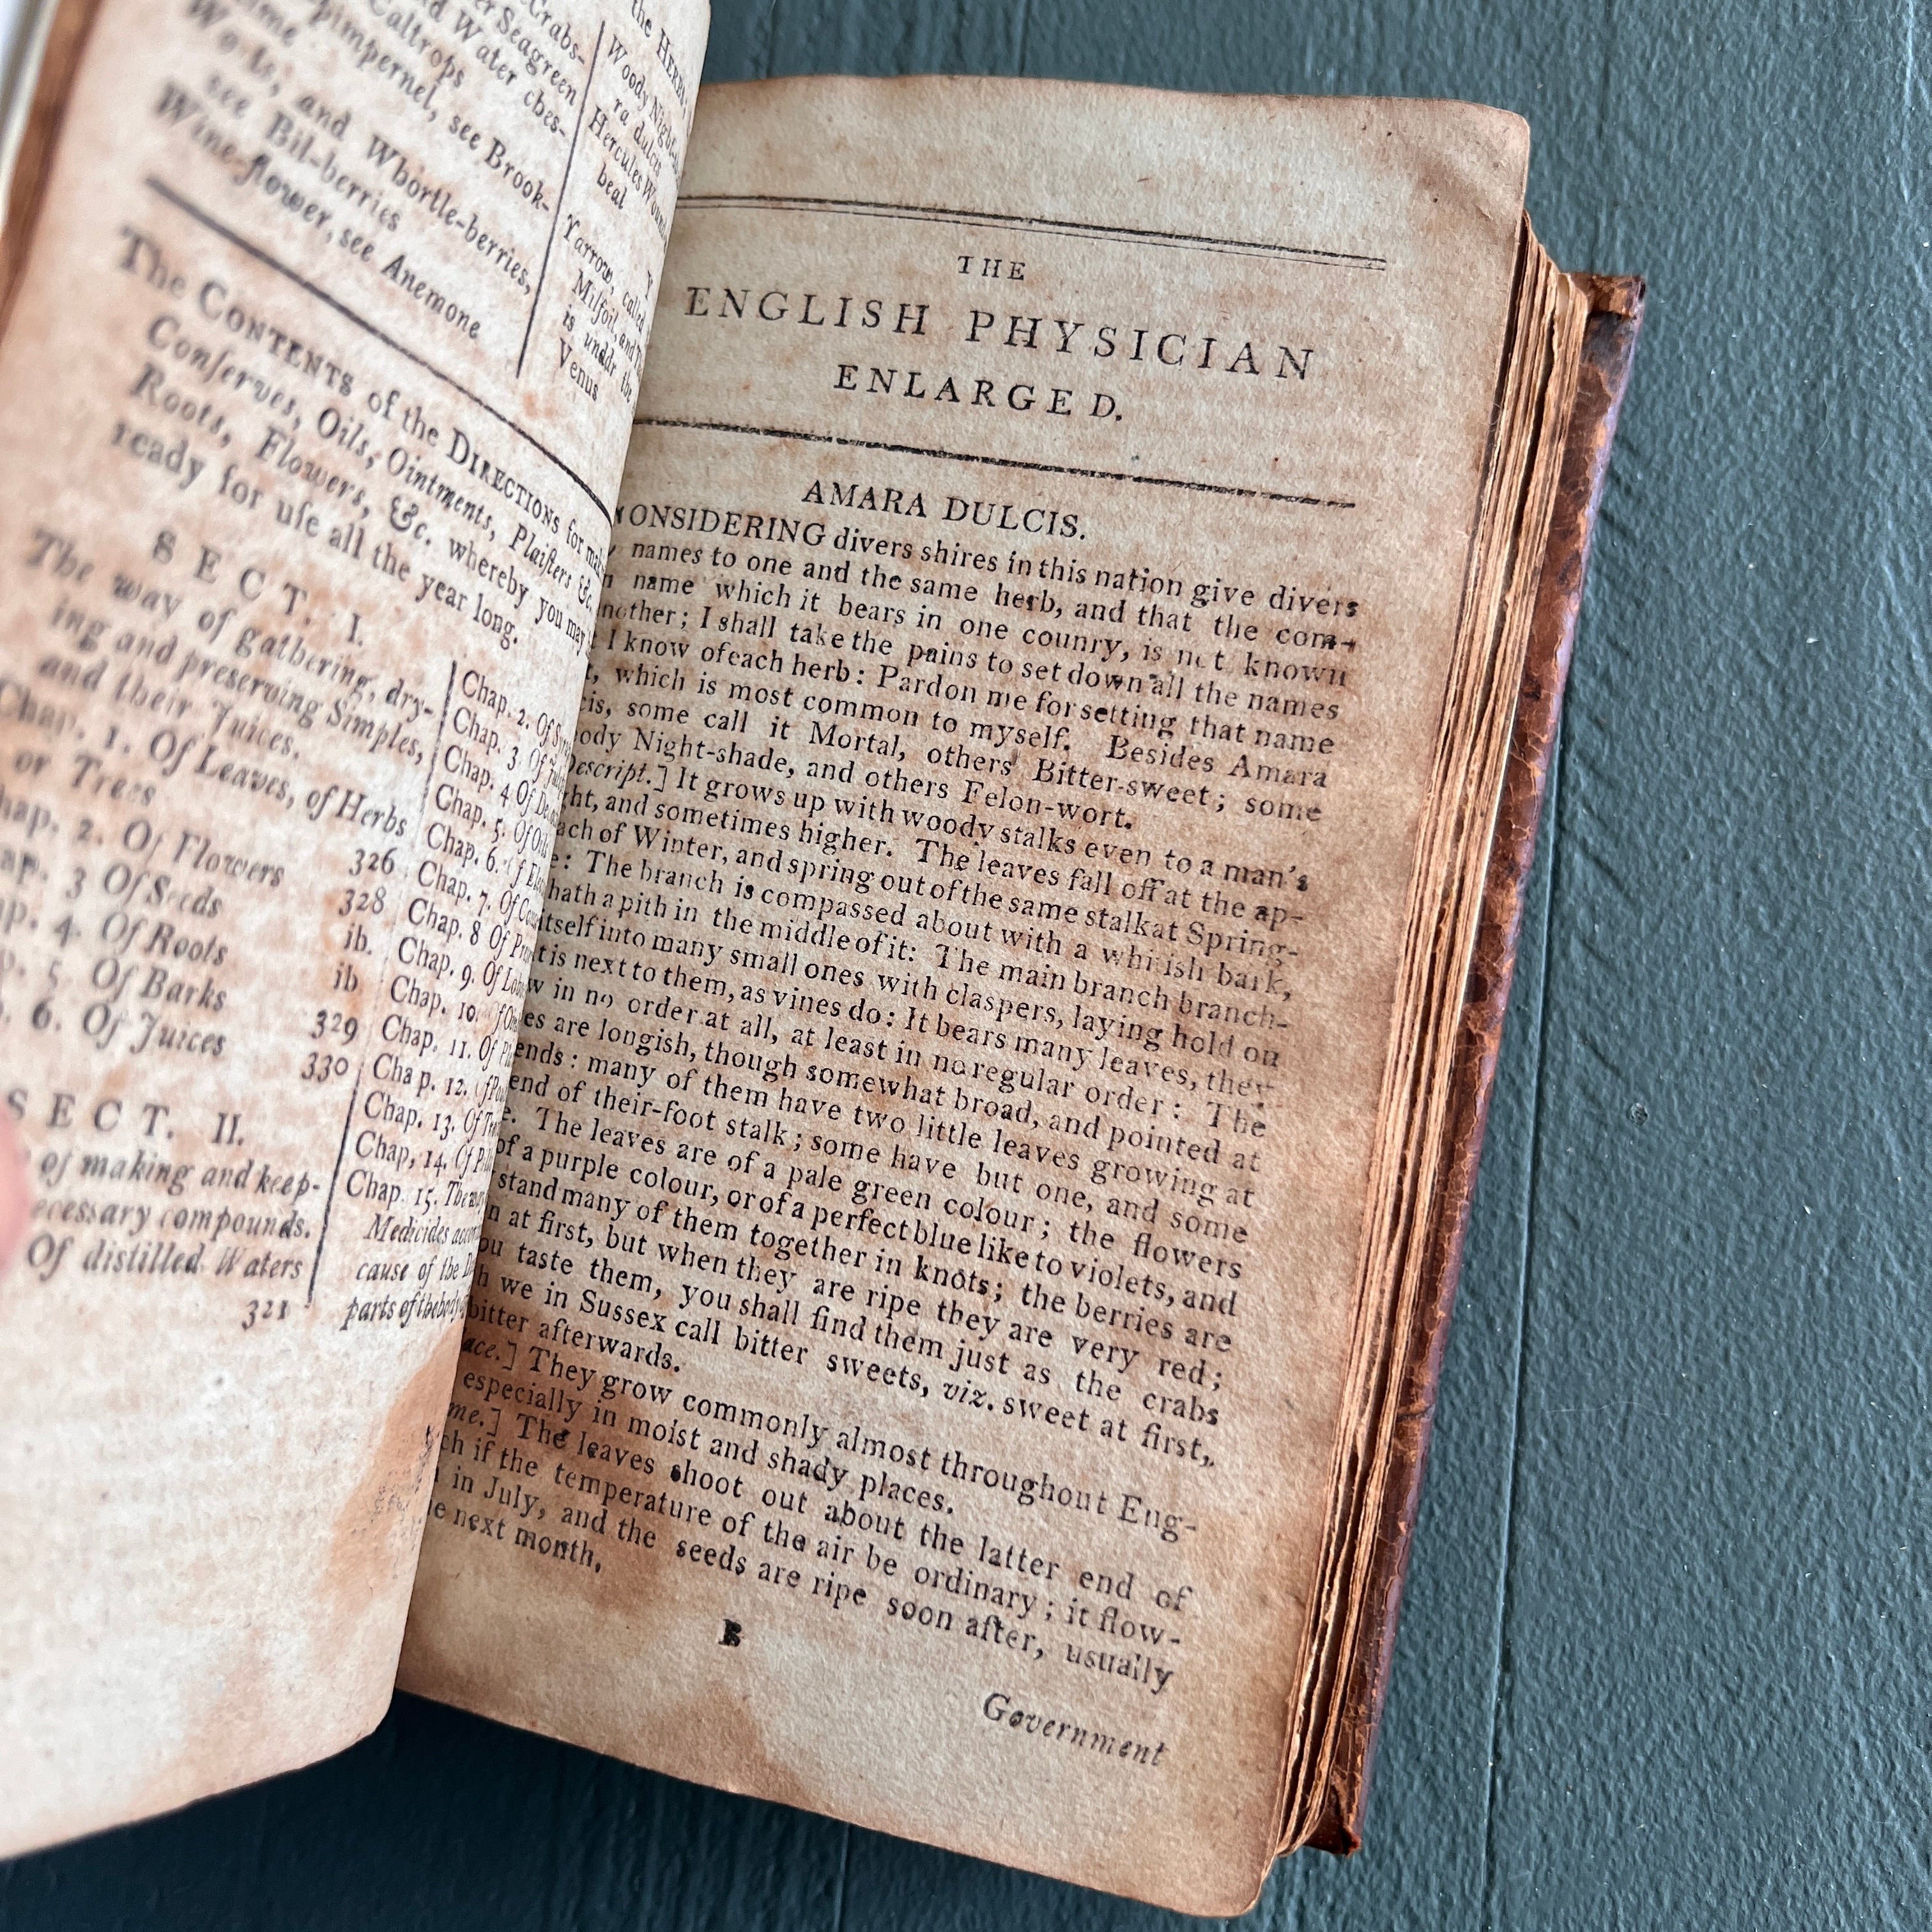 Crabs-
er Seagreen
Caltrops
nd Water ches-
pimpernel, see Brook-
lime
Worts, and Whortle-berries,
see Bil-berries
Wine-flower, see Anemone
the HERB
Woody Night-
ra dulcis
Hercules Wound
beal
Y
Yarrow, called
Milfoil, and
is unddr the
Venus
The CONTENTS of the DIRECTIONS for
Conſerves, Oils, Ointments, Plaiſters &c.
Roots, Flowers, &c. whereby you may
ready for uſe all the year long.
SECT. I.
The way of gathering, dry-
ing and preserving Simples,
and their Juices.
Chap. 1. Of Leaves, of Herbs
or Trees 326
Chap. 2. Of Flowers 328
Chap. 3 Of Seeds ib.
4. Of Roots ib
5. Of Barks 329
6. Of Juices 330
SECT. II.
of making and keep-
ecessary compounds.
Of distilled Waters
321
Chap. 2. Of
Chap. 3 Of
Chap. 4 Of
Chap. 5. Of
Chap. 6.
Chap. 7. Of
Chap. 8 Of
Chap. 9. Of
Chap. 10.
Chap. 11. Of
Chap. 12.
Chap. 13. Of
Chap, 14. Of
Chap. 15. The
Medicides
cause of the
parts of the body
THE
ENGLISH PHYSICIAN
ENLARGED.
AMARA DULCIS.
ONSIDERING divers shires in this nation give divers
names to one and the same herb, and that the com-
name which it bears in one counry, is not known
nother; I shall take the pains to set down all the names
I know of each herb: Pardon me for setting that name
which is most common to myself. Besides Amara
cis, some call it Mortal, others Bitter-sweet; some
oody Night-shade, and others Felon-wort.
Descript.] It grows up with woody stalks even to a man's
ht, and sometimes higher. The leaves fall off at the ap-
ach of Winter, and spring out of the same stalk at Spring-
e: The branch is compassed about with a whitish bark,
hath a pith in the middle of it: The main branch branch-
itself into many small ones with claspers, laying hold on
t is next to them, as vines do: It bears many leaves, they
w in no order at all, at least in no regular order: The
es are longish, though somewhat broad, and pointed at
ends: many of them have two little leaves growing at
end of their-foot stalk; some have but one, and some
e. The leaves are of a pale green colour; the flowers
of a purple colour, or of a perfect blue like to violets, and
stand many of them together in knots; the berries are
n at first, but when they are ripe they are very red;
ou taste them, you shall find them just as the crabs
h we in Sussex call bitter sweets, viz. sweet at first,
bitter afterwards.
ace.] They grow commonly almost throughout Eng-
especially in moist and shady places.
me.] The leaves shoot out about the latter end of
ch if the temperature of the air be ordinary; it flow-
in July, and the seeds are ripe soon after, usually
e next month,
B
Government